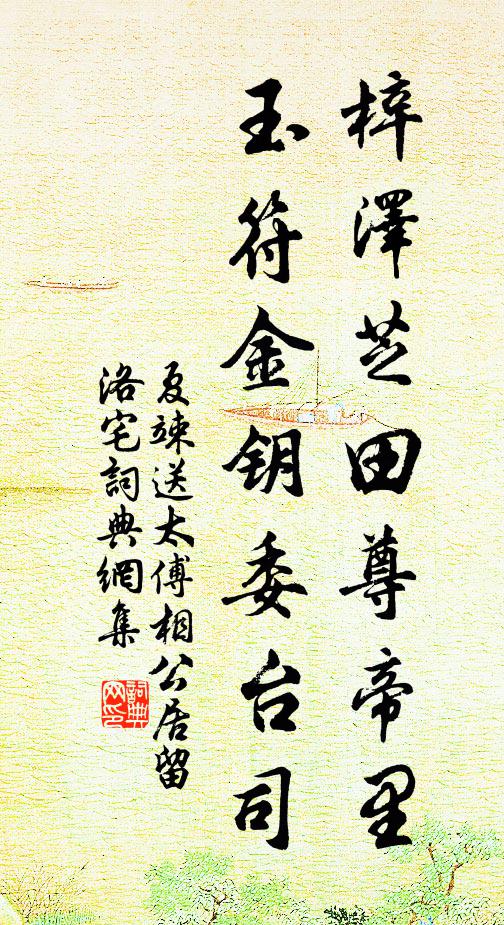 梓澤芝田尊帝里
玉符金钥委台司
夏竦送太傅相公居留
洛宅詞典網集
詞典
网印